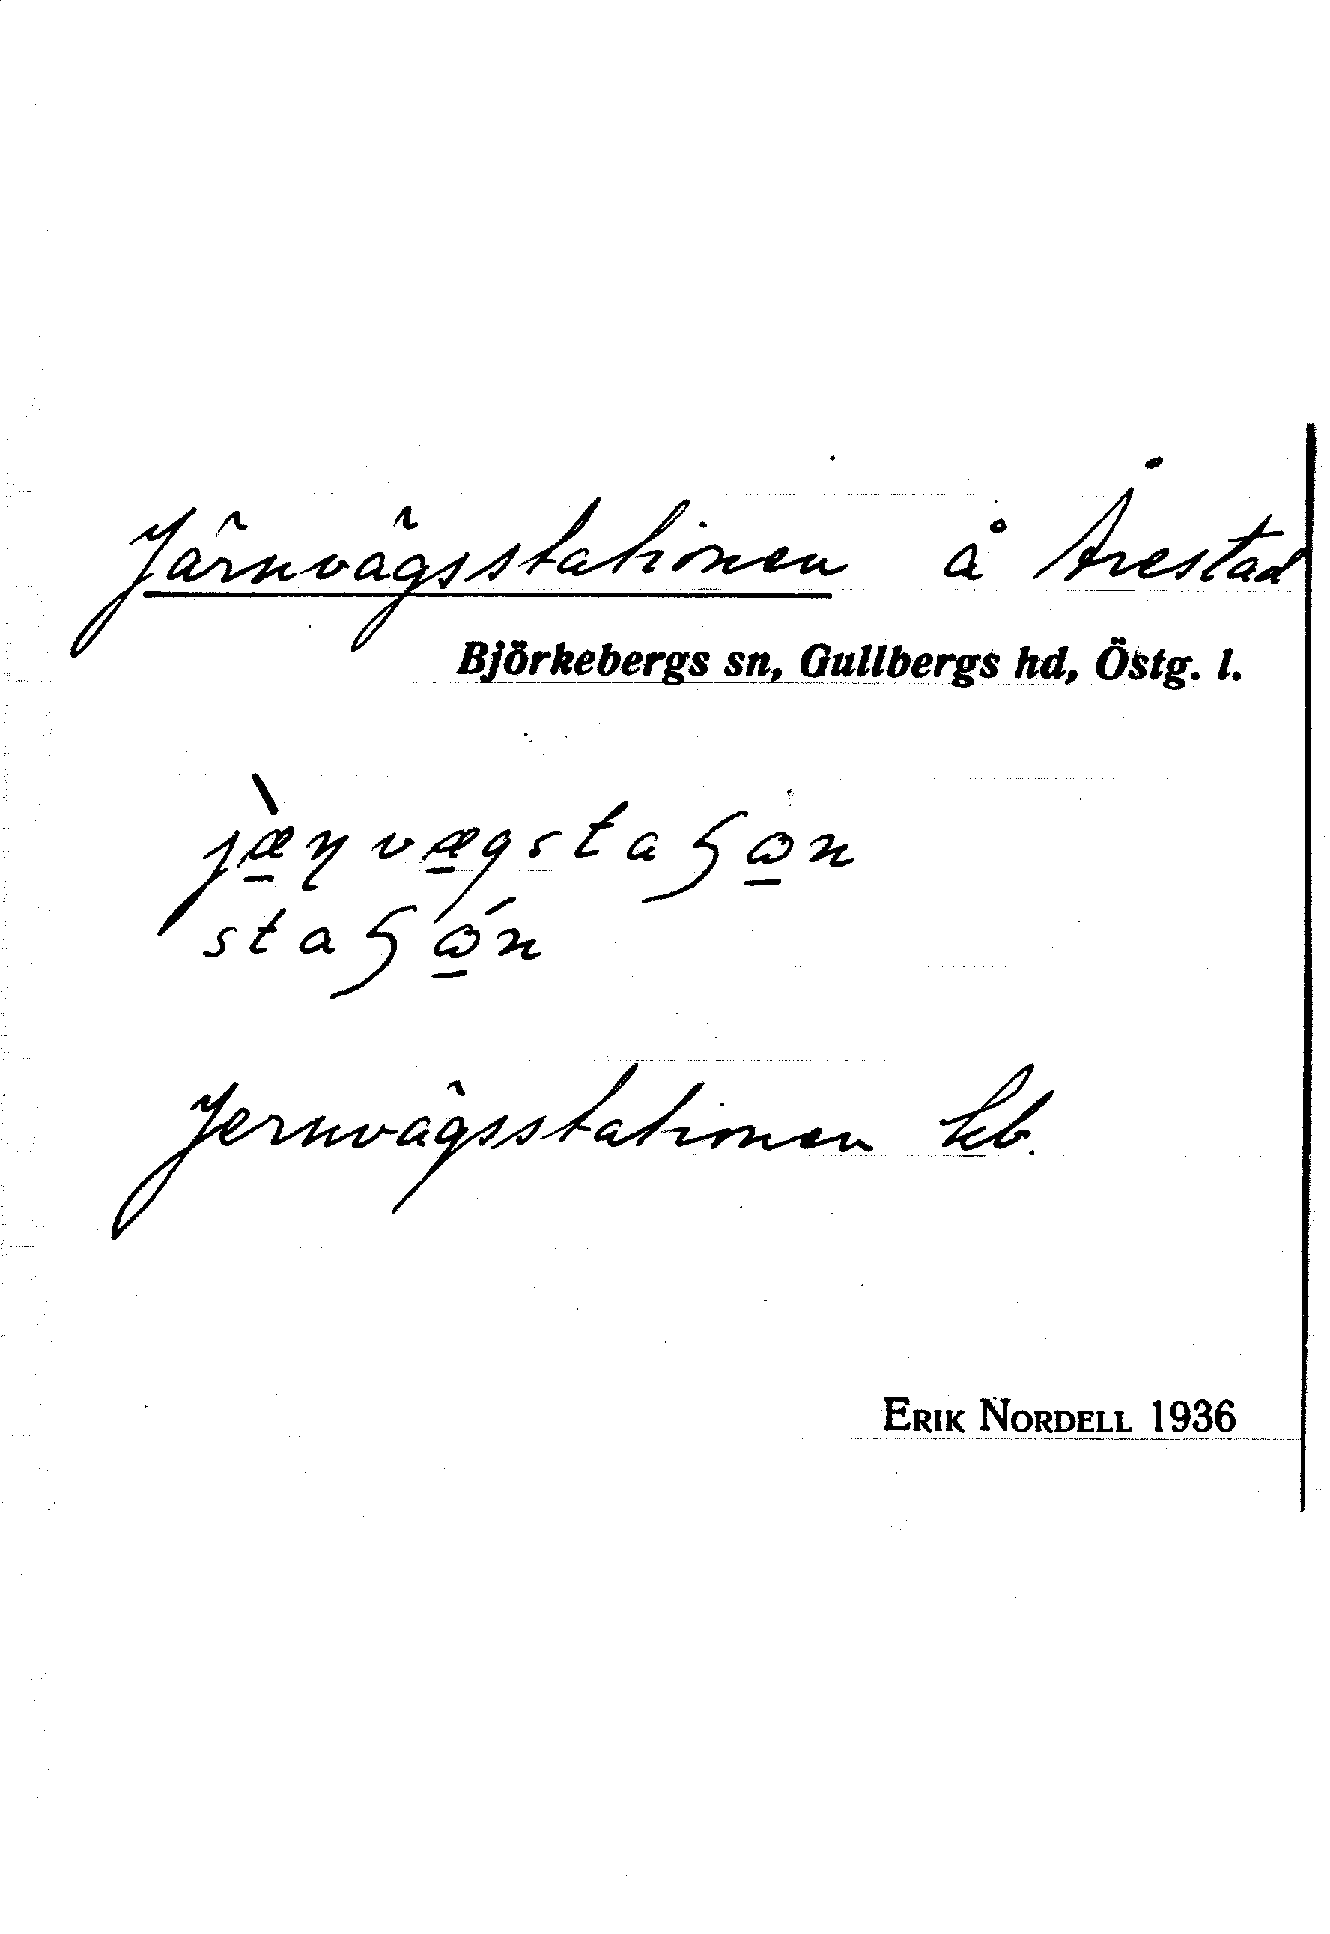 Järnvägsstationen å Årestad
Björkebergs sn, Gullbergs hd, Östg. l.
jæ̠̀ɳvæ̠gstaʃω̠n
staʃώ̠n
Jernvägsstationen kb.
ERIK NORDELL 1936